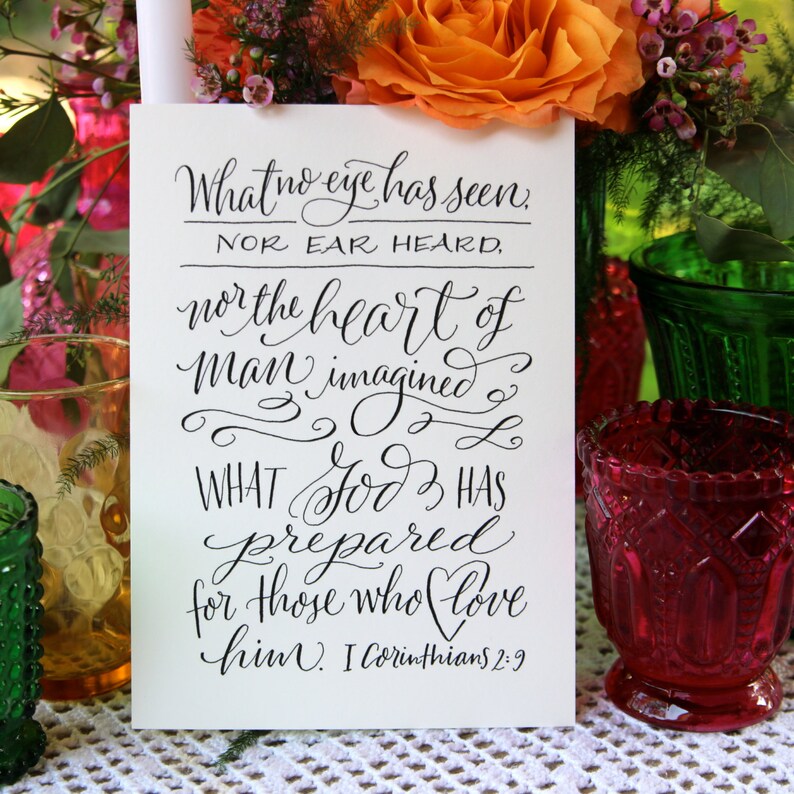 What no eye has seen,
NOR EAR HEARD,
nor the heart of
man imagined
WHAT God HAS
prepared
for those who love
him. I Corinthians 2:9